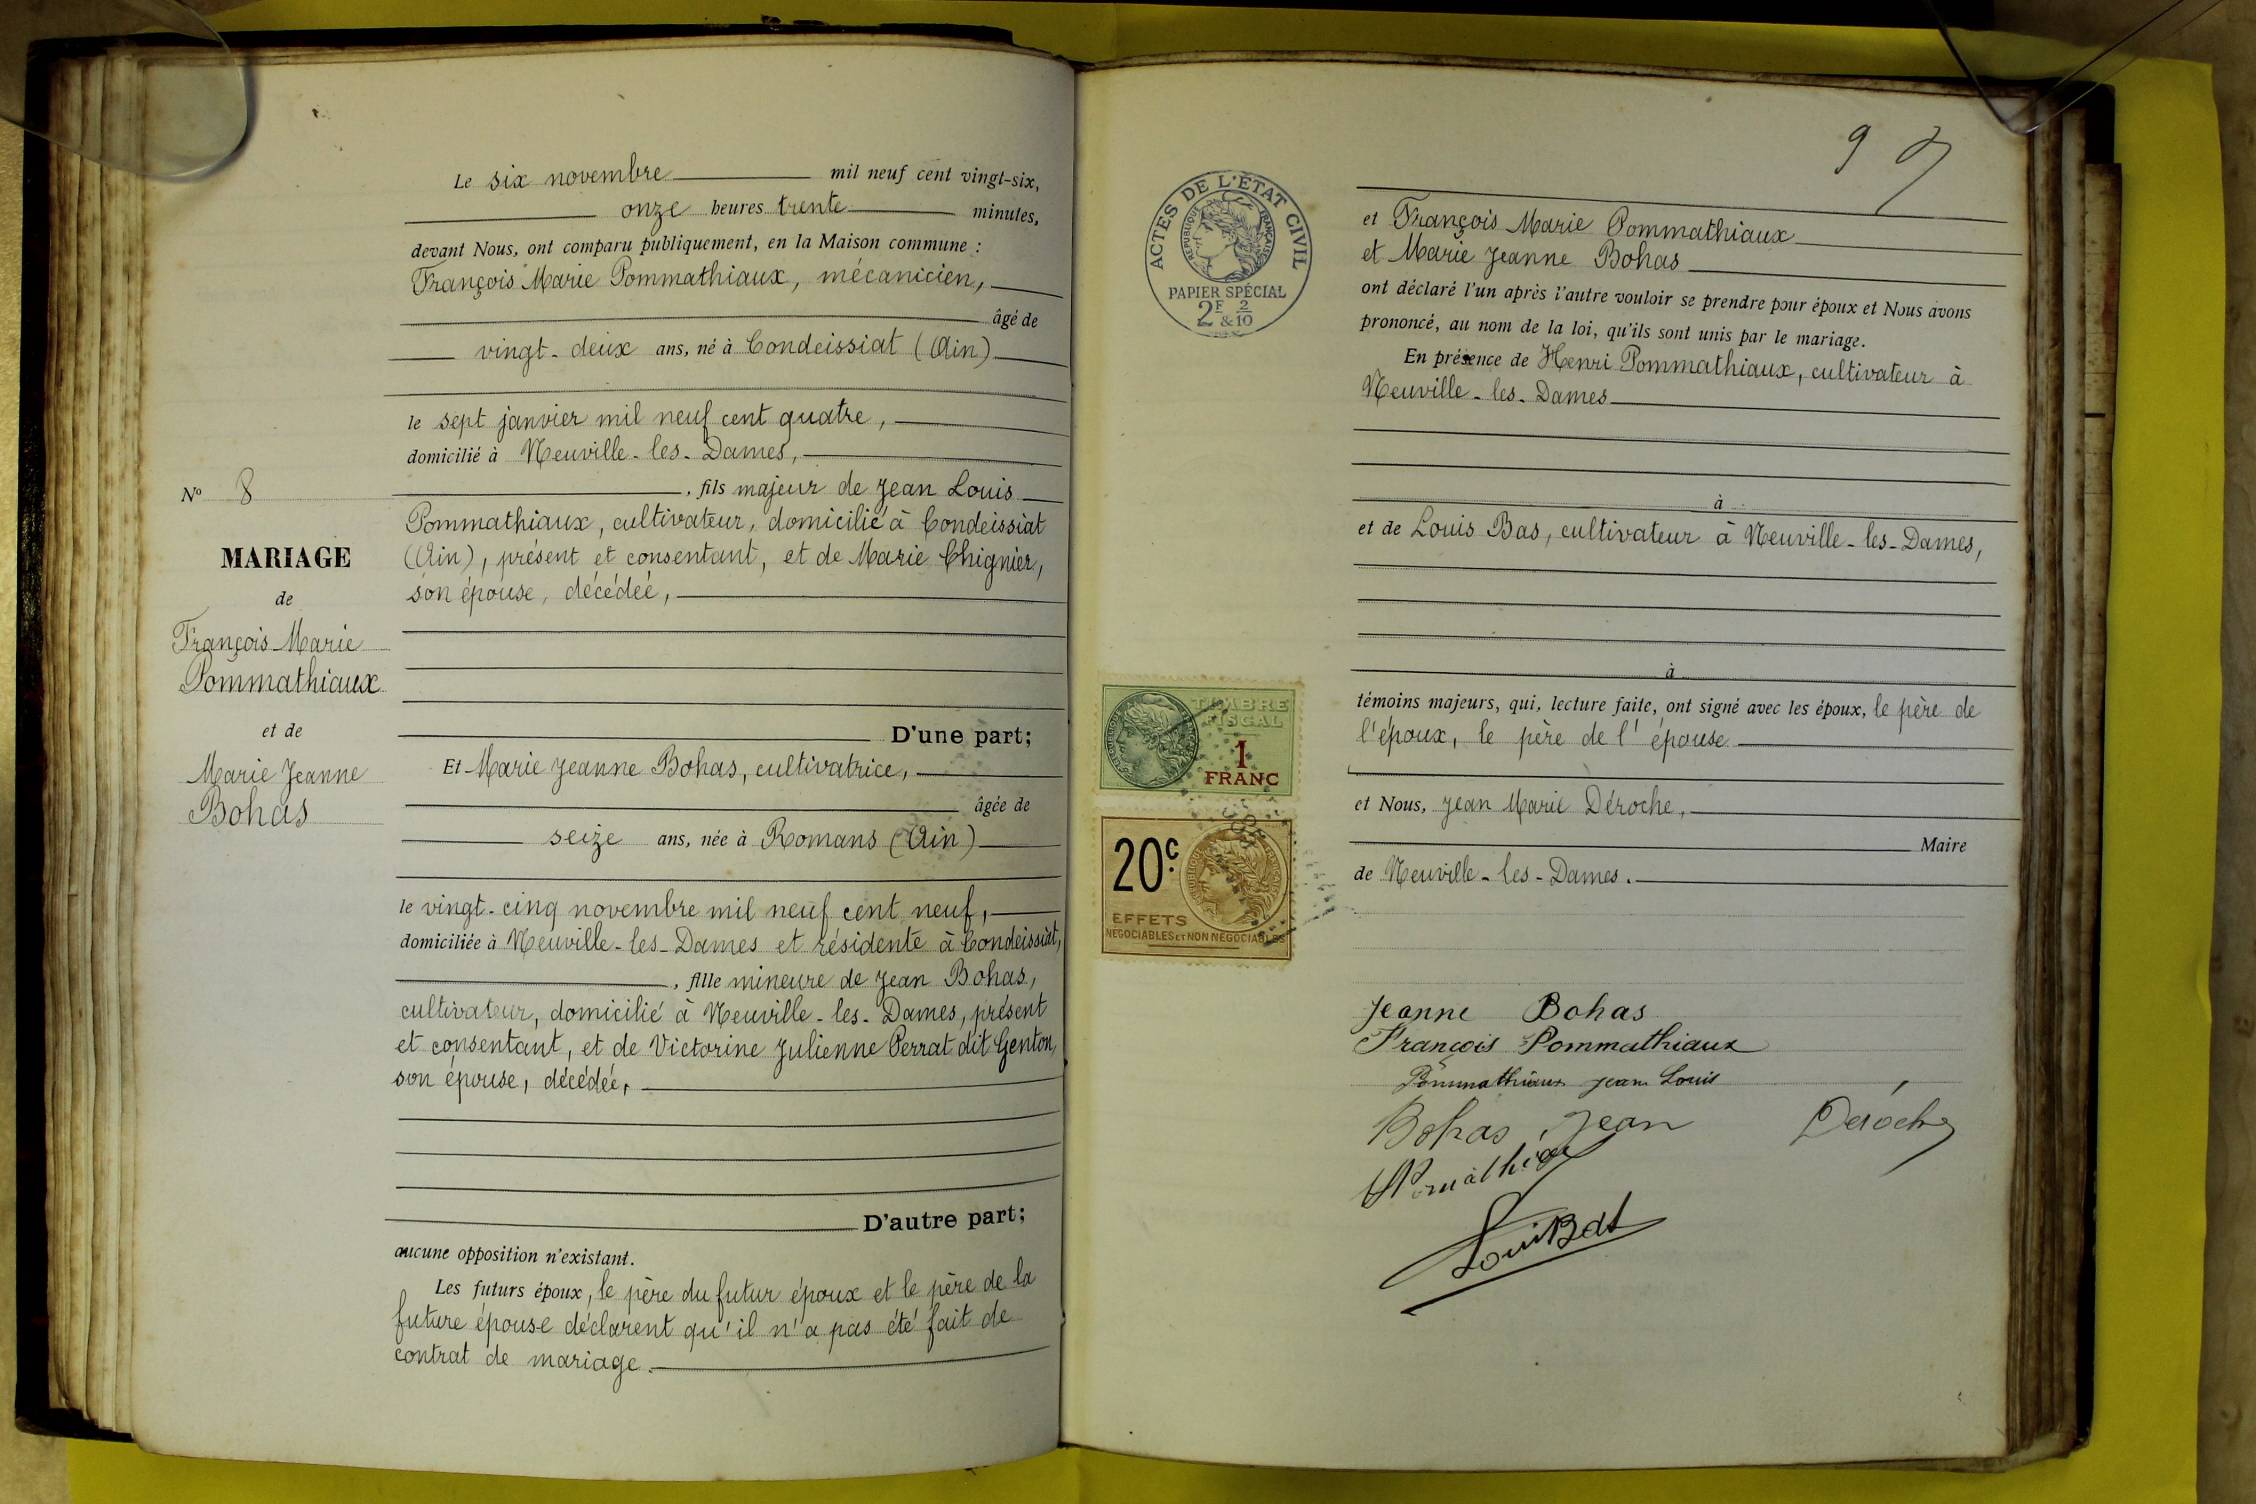 Le six novembre mil neuf cent vingt-six,
onze heures trente minutes,
devant Nous, ont comparu publiquement, en la Maison commune :
François Marie Pommathiaux, mécanicien,
âgé de
vingt-deux ans, né à Condeissiat (Ain)
le sept janvier mil neuf cent quatre,
domicilié à Neuville-les-Dames,
, fils majeur de Jean Louis
Pommathiaux, cultivateur, domicilié à Condeissiat
(Ain), présent et consentant, et de Marie Chignier,
son épouse, décédée,
D'une part;
Et Marie Jeanne Bohas, cultivatrice,
âgée de
seize ans, née à Romans (Ain)
le vingt-cinq novembre mil neuf cent neuf,
domiciliée à Neuville-les-Dames et résidente à Condeissiat,
, fille mineure de Jean Bohas,
cultivateur, domicilié à Neuville-les-Dames, présent
et consentant, et de Victorine Julienne Perrat dit Genton,
son épouse, décédée,
D'autre part;
aucune opposition n'existant.
Les futurs époux, le père du futur époux et le père de la
future épouse déclarent qu'il n'a pas été fait de
contrat de mariage.
N° 8
MARIAGE
de
François Marie
Pommathiaux
et de
Marie Jeanne
Bohas
9
ACTES DE L'ÉTAT CIVIL
RÉPUBLIQUE FRANÇAISE
PAPIER SPÉCIAL
2F & 2/10
et François Marie Pommathiaux
et Marie Jeanne Bohas
ont déclaré l'un après l'autre vouloir se prendre pour époux et Nous avons
prononcé, au nom de la loi, qu'ils sont unis par le mariage.
En présence de Henri Pommathiaux, cultivateur à
Neuville-les-Dames
à
et de Louis Bas, cultivateur à Neuville-les-Dames,
à
témoins majeurs, qui, lecture faite, ont signé avec les époux, le père de
l'époux, le père de l'épouse
et Nous, Jean Marie Déroche,
Maire
de Neuville-les-Dames.
TIMBRE
FISCAL
1
FRANC
20c
EFFETS
NÉGOCIABLES ET NON NÉGOCIABLES
Jeanne Bohas
François Pommathiaux
Pommathiaux Jean Louis
Bohas Jean
Déroche
Louis Bas